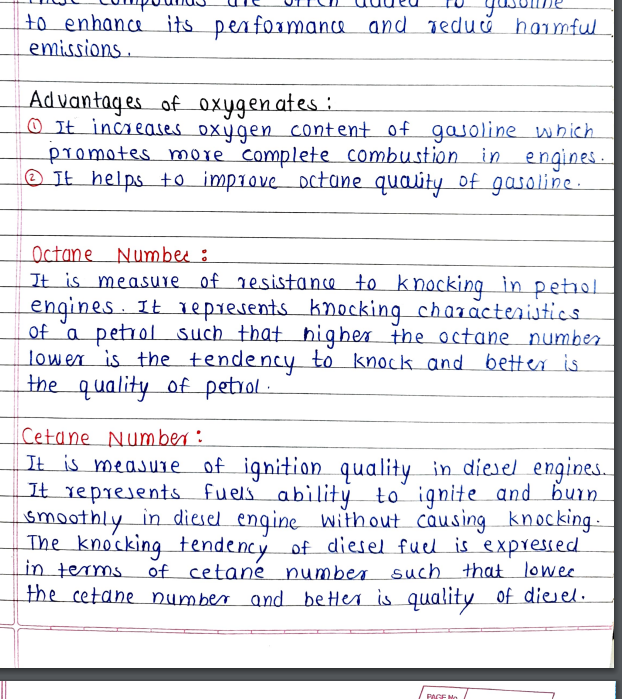 These compounds are often added to gasoline
to enhance its performance and reduce harmful
emissions.
Advantages of oxygenates :
① It increases oxygen content of gasoline which
promotes more complete combustion in engines.
② It helps to improve octane quality of gasoline.
Octane Number :
It is measure of resistance to knocking in petrol
engines. It represents knocking characteristics
of a petrol such that higher the octane number
lower is the tendency to knock and better is
the quality of petrol.
Cetane Number :
It is measure of ignition quality in diesel engines.
It represents fuels ability to ignite and burn
smoothly in diesel engine without causing knocking.
The knocking tendency of diesel fuel is expressed
in terms of cetane number such that lower
the cetane number and better is quality of diesel.
PAGE No.